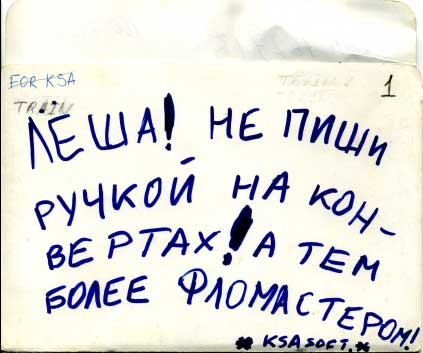 FOR KSA
1
TRAIN
ЛЁША! НЕ ПИШИ
РУЧКОЙ НА КОН-
ВЕРТАХ! А ТЕМ
БОЛЕЕ ФЛОМАСТЕРОМ!
* KSA SOFT. *